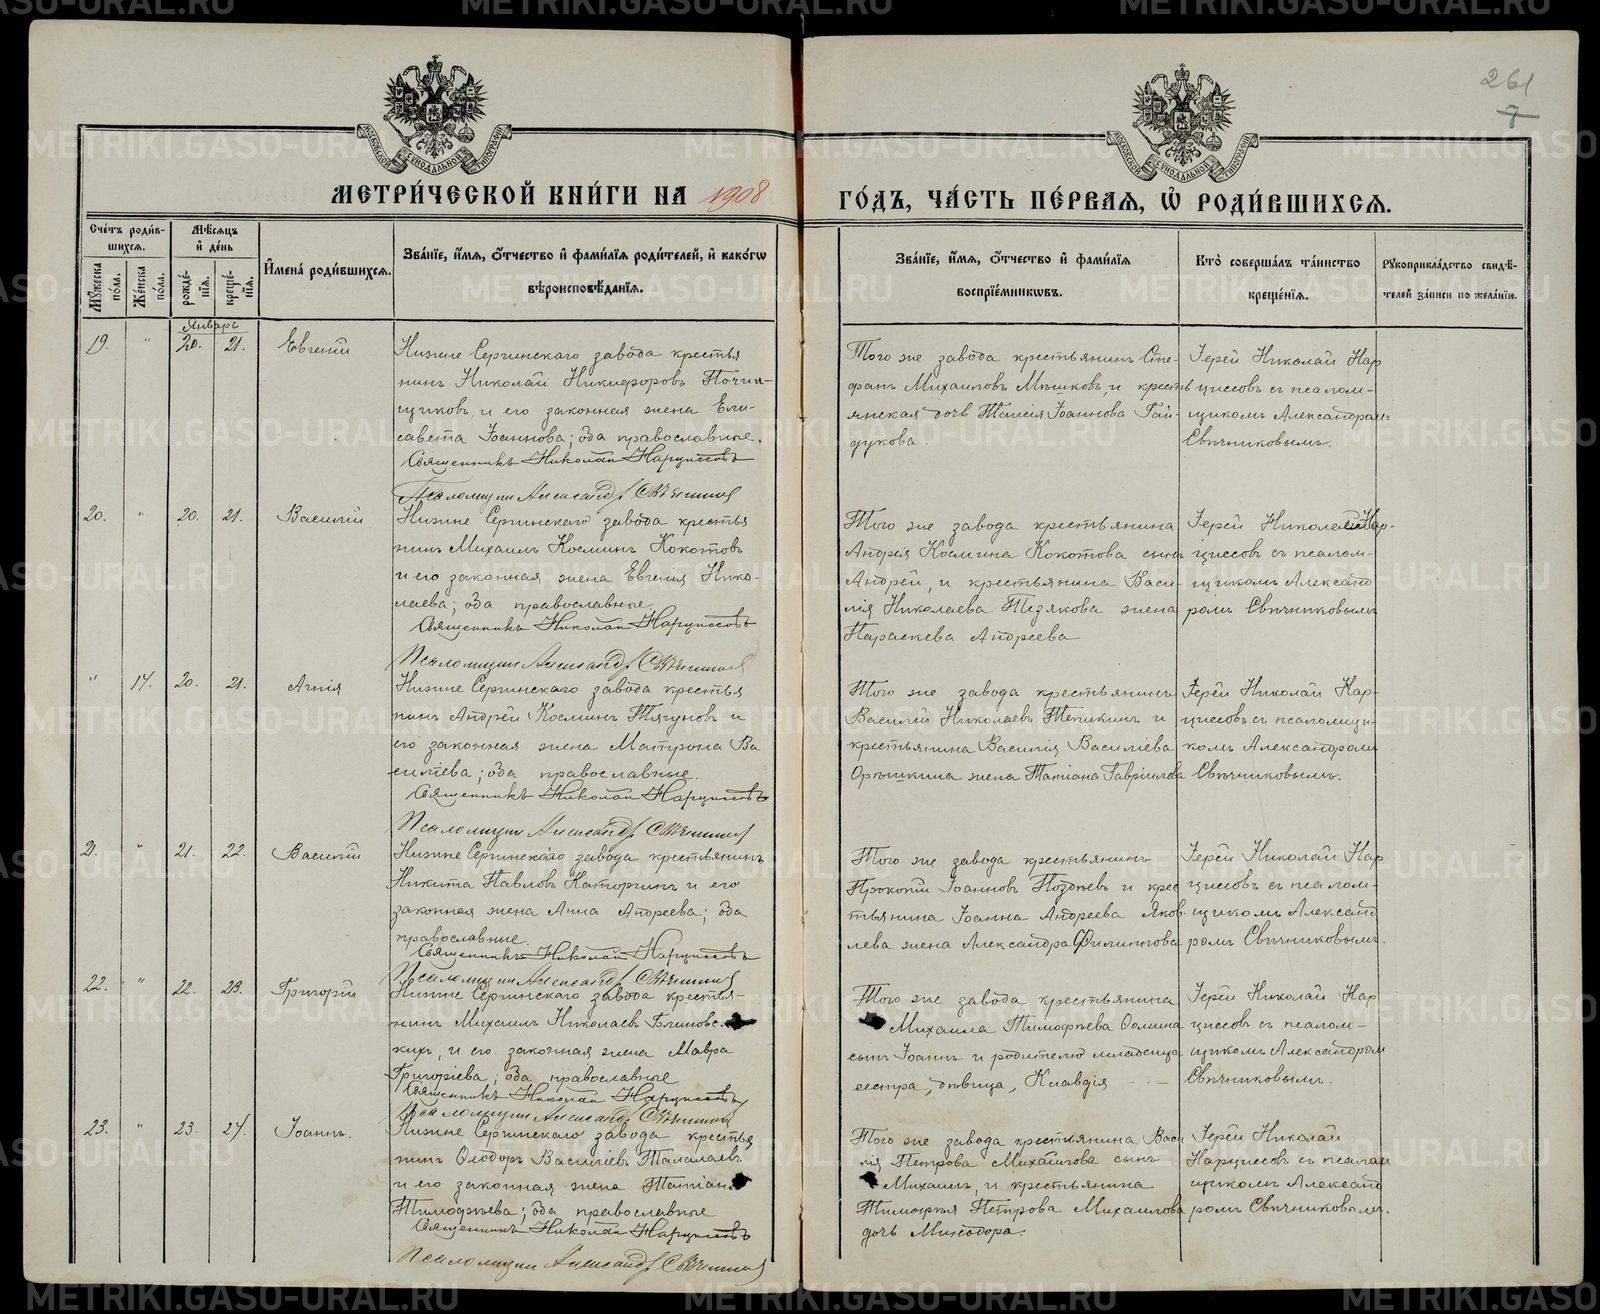 261
7
МЕТРИ́ЧЕСКОЙ КНИ́ГИ НА 1908
ГО́ДЪ, ЧА́СТЬ ПЕ́РВАѦ, Ѡ҆ РОДИ́ВШИХСѦ.
Сче́тъ роди́в-
шихсѧ.
Мꙋ́жеска по́ла.
Же́нска по́ла.
Мѣ́сѧцъ и҆ де́нь
рожде́-
нїѧ.
креще́-
нїѧ.
И҆мена̀ роди́вшихсѧ.
Зва́нїе, и҆́мѧ, ѻ҆́тчество и҆ фами́лїѧ роди́телей, и҆ како́гѡ
вѣроисповѣ́данїѧ.
Зва́нїе, и҆́мѧ, ѻ҆́тчество и҆ фами́лїѧ
воспрїе́мникѡвъ.
Кто̀ соверша́лъ та́инство
креще́нїѧ.
Рꙋкоприкла́дство свидѣ́-
телей за́писи по жела́нїю.
Январь
19. " 20. 21. Евгенiй
Нижне Сергинскаго завода крестья
нинъ Николай Никифоровъ Почин-
щиковъ, и его законная жена Ели-
савета Іоаннова; оба православные.
Священникъ Николай Нарциссовъ
Псаломщик Александр Свѣчников
Того же завода крестьянинъ Сте-
фанъ Михаиловъ Мѣшковъ, и кресть
янская дочь Таисія Іоаннова Гай-
дукова.
Іерей Николай Нар
циссовъ съ псалом-
щикомъ Александромъ
Свѣчниковымъ.
20. " 20. 21. Василій
Нижне Сергинскаго завода крестья
нинъ Михаилъ Косминъ Кокотовъ
и его законная жена Евгенія Нико-
лаева; оба православные.
Священникъ Николай Нарциссовъ
Псаломщик Александр Свѣчников
Того же завода крестьянина
Андрея Космина Кокотова сынъ
Андрей, и крестьянина Васи-
лія Николаева Тезякова жена
Параскева Андреева
Іерей Николай Нар-
циссовъ съ псалом-
щикомъ Александ
ромъ Свѣчниковымъ
" 14. 20. 21. Агнія
Нижне Сергинскаго завода крестья
нинъ Андрей Косминъ Тягуновъ и
его законная жена Матрона Ва
силіева; оба православные.
Священникъ Николай Нарциссовъ
Псаломщик Александр Свѣчников
Того же завода крестьянинъ
Василій Николаевъ Тепикинъ и
крестьянина Василія Василіева
Орѣшкина жена Татіана Гавріилова
Іерей Николай Нар-
циссовъ съ псаломщи-
комъ Александромъ
Свѣчниковымъ.
21. " 21. 22. Василій
Нижне Сергинскаго завода крестьянинъ
Никита Павловъ Каторгинъ и его
законная жена Анна Андреева; оба
православные.
Священникъ Николай Нарциссовъ
Псаломщик Александр Свѣчников
Того же завода крестьянинъ
Прокопій Іоанновъ Поздѣевъ и крес
тьянина Іоанна Андреева Яков
лева жена Александра Филиппова
Іерей Николай Нар
циссовъ съ псалом-
щикомъ Александ
ромъ Свѣчниковымъ.
22. " 22. 23. Григорій
Нижне Сергинскаго завода крестья-
нинъ Михаилъ Николаевъ Блиновс-
кихъ, и его законная жена Мавра
Григоріева; оба православные
Священникъ Николай Нарциссовъ
Псаломщик Александр Свѣчников
Того же завода крестьянина
Михаила Тимофѣева Фомина
сынъ Іоаннъ и родителю младенца
сестра, дѣвица, Клавдія
Іерей Николай Нар
циссовъ съ псалом-
щикомъ Александром
Свѣчниковымъ.
23. " 23. 24. Іоаннъ.
Нижне Сергинскаго завода крестья
нинъ Ѳеодоръ Василіевъ Талалаевъ
и его законная жена Татіана
Тимофѣева; оба православные
Священникъ Николай Нарциссовъ
Псаломщик Александр Свѣчников
Того же завода крестьянина Васи
лія Петрова Михайлова сынъ
Михаилъ, и крестьянина
Тимофея Петрова Михаилова
дочь Минодора.
Іерей Николай
Нарциссовъ съ псалом
щикомъ Александ
ромъ Свѣчниковымъ.
METRIKI.GASO-URAL.RU